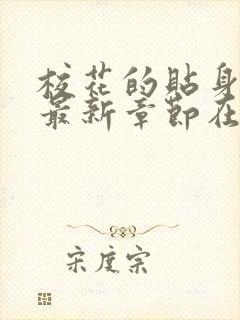 校花的貼身
最新章節在
宋度宗